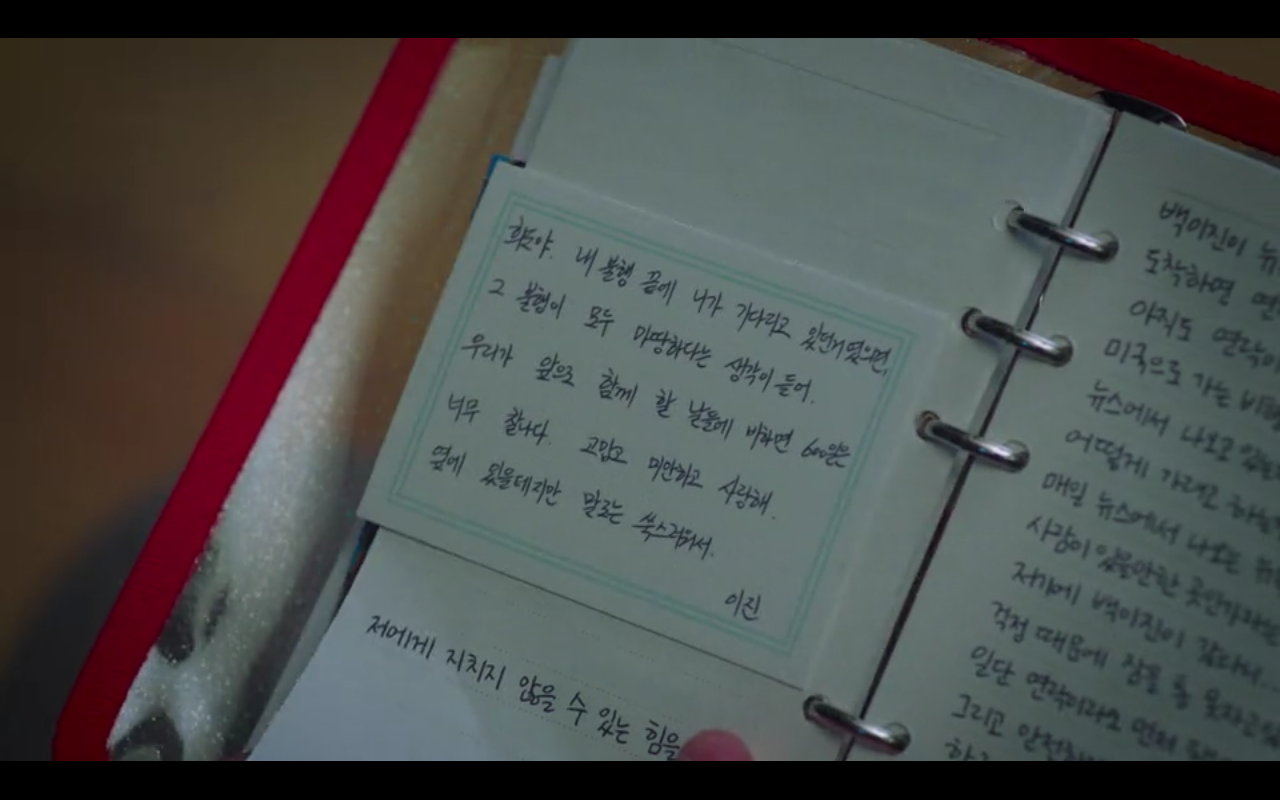 희도야. 내 불행 끝에 니가 기다리고 있던거였으면,
그 불행이 모두 마땅하다는 생각이 들어.
우리가 앞으로 함께 할 날들에 비하면 600일은
너무 찰나다. 고맙고 미안하고 사랑해.
옆에 있을테지만 말로는 쑥스러워서.
이진
저에게 지치지 않을 수 있는 힘을
백이진이
도착하면
아직도
미국으로 가는
뉴스에서
어떻게 가려고
매일 뉴스에서 나오는
사람이 있을만한
저기에 백이진이
걱정 때문에 잠을
일단 연락이라도 먼저
그리고